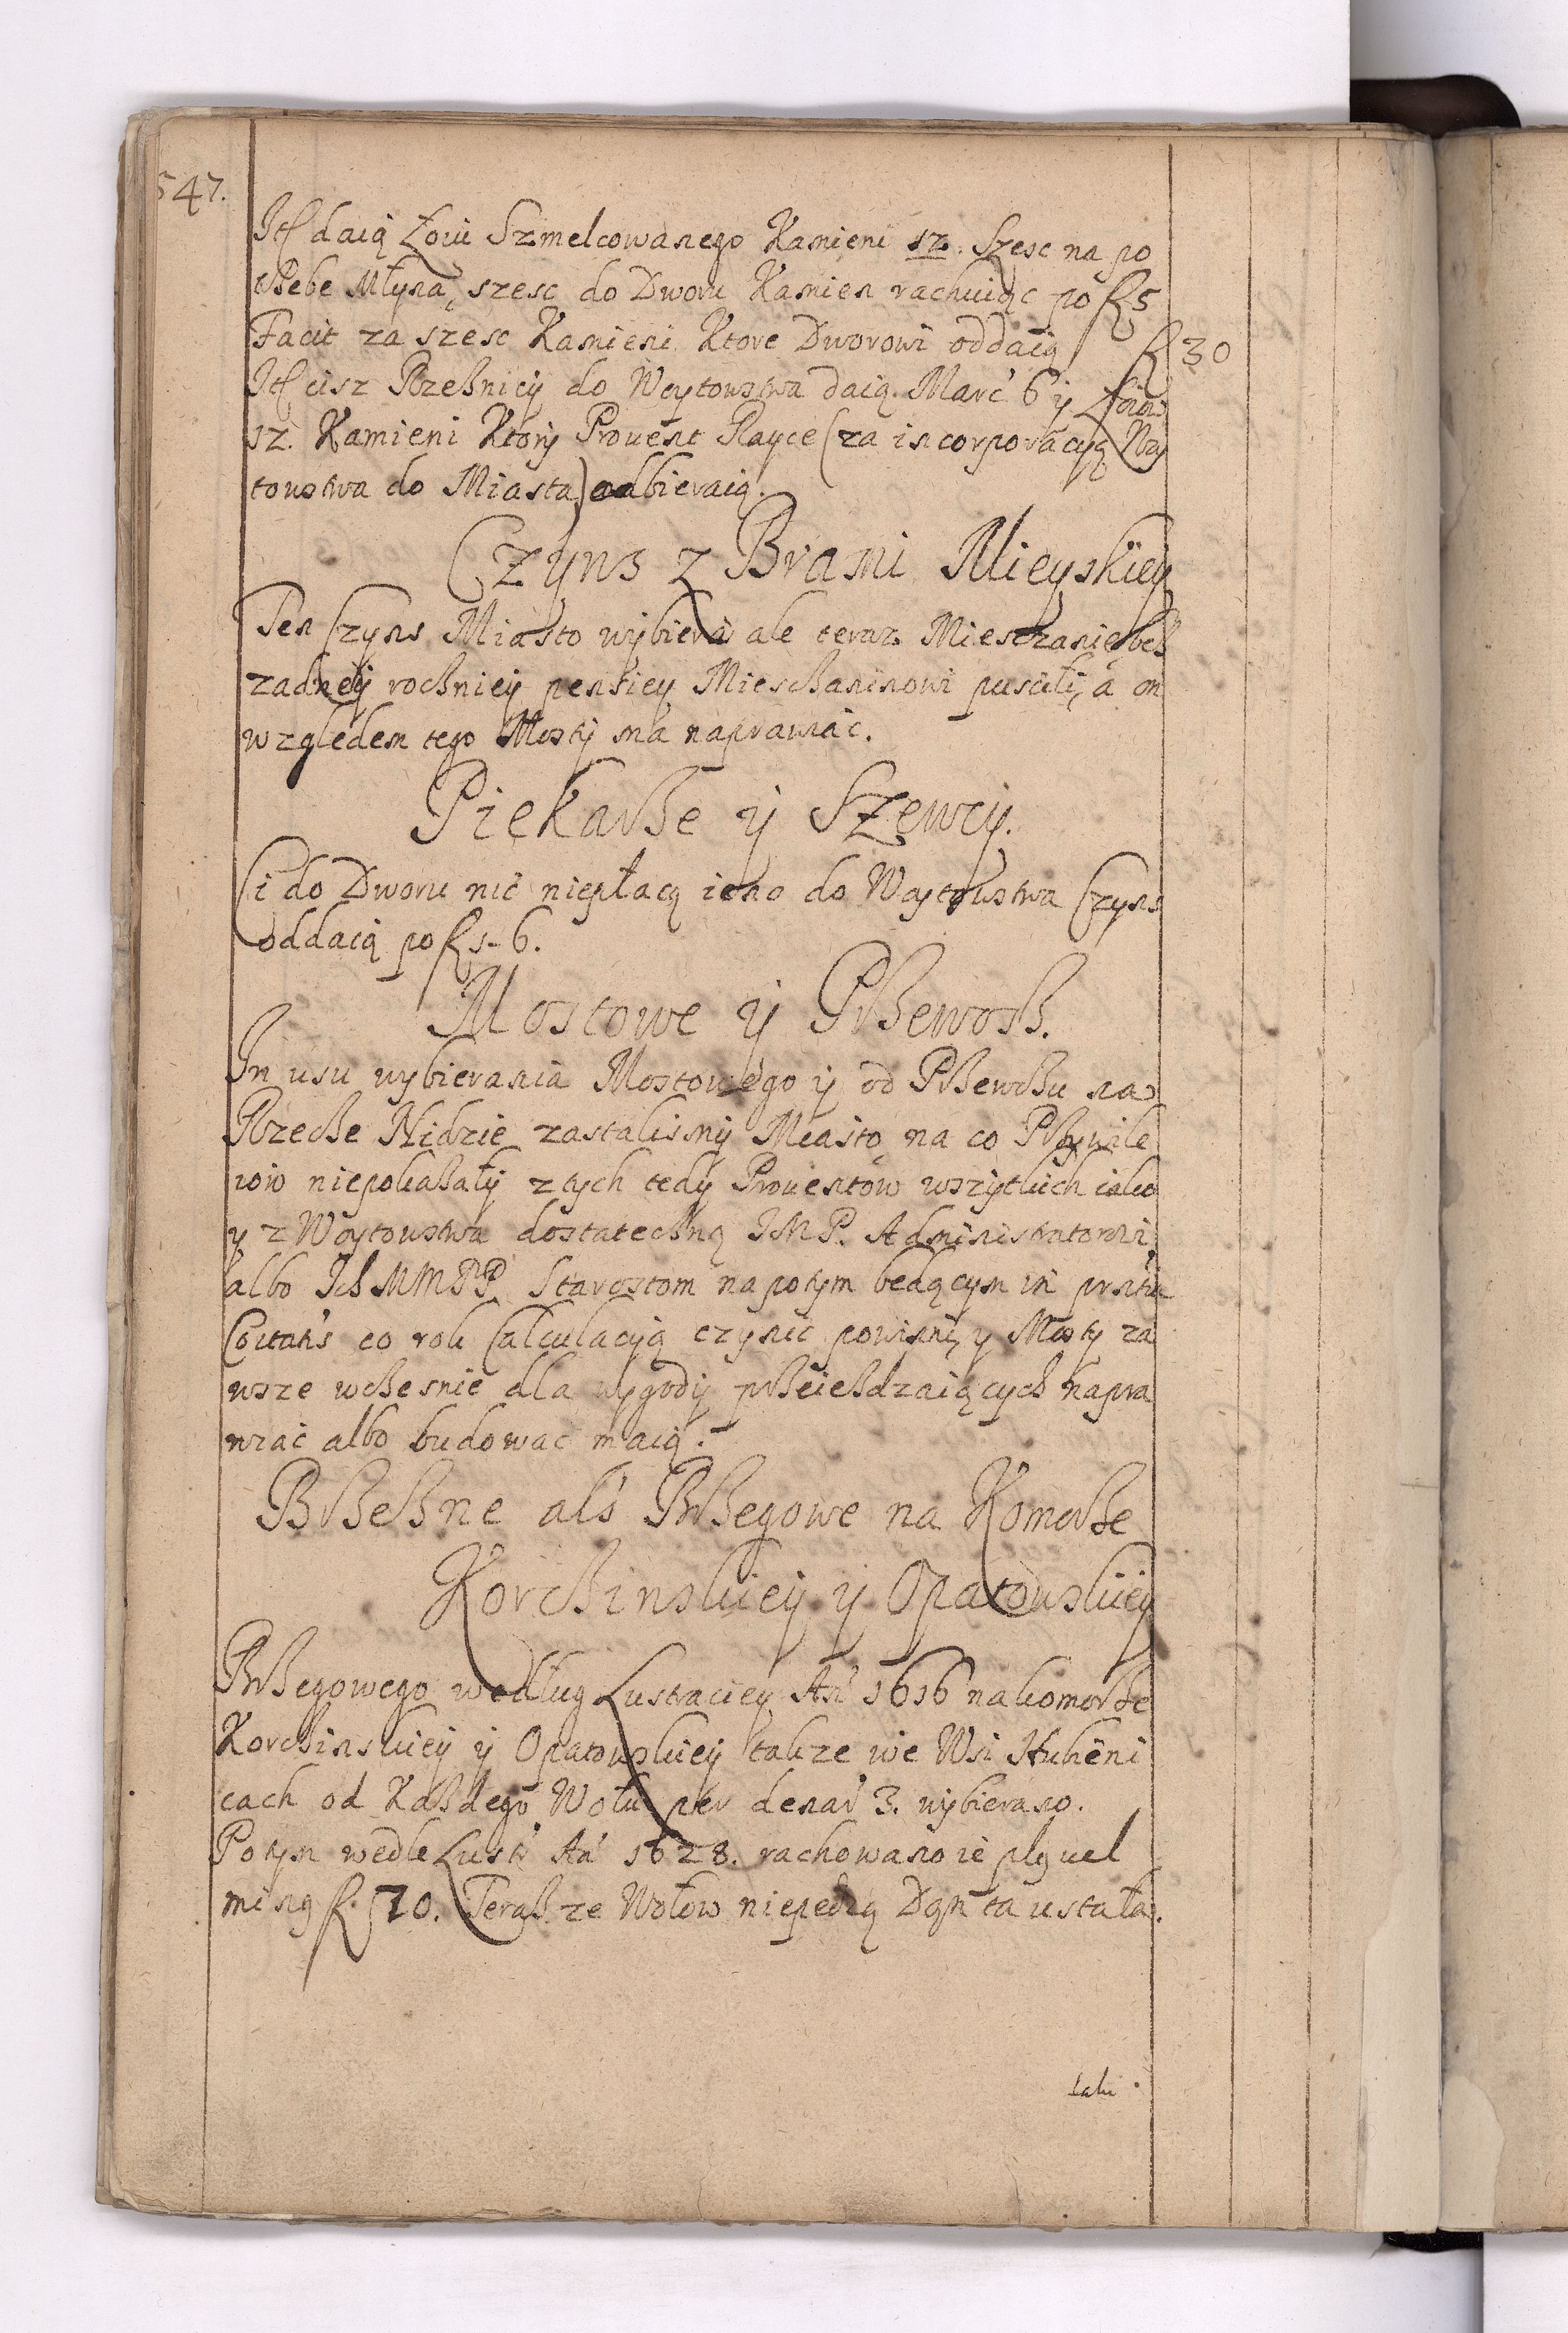 547.
Itſ daią Łoiu Szmelcowanego Kamieni 12. Szesc na po
trzebe Młyna, szesc do Dworu Kamien rachuiąc po fl 5
Facit za szesc Kamieni Ktore Dworowi oddaią fl 30
Itſ cisz Rzeźnicy do Woytowstwa daią. Marc 6 y Łoiu
12. Kamieni Ktory Prouent Rayce (za incorporacyą Woy
towstwa do Miasta) odbieraią.
Czyns z Brami Mieyskiey
Ten Czyns Miasto wybiera ale teraz Miesczanie bez
zadney roczniey pensiey Mieszczaninowi puscili, a on
względem tego Mosty ma naprawiac.
Piekarze y Szewcy.
Ci do Dworu nic niepłacą ieno do Woytowstwa Czyns
oddaią po fl 1-6.
Mostowe y Przewoz.
In usu wybierania Mostowego y od Przewozu na
Rzecze Nidzie zastalismy Miasto na co Przywile
iow niepokazały z tych tedy Prouentow wszytkich iako
y z Woytowstwa dostateczną IMP. Administratorowi
albo Ich MMPP. Starostom napotym będącym in prntia
Ciuitatis co rok Calculacyą czynic powinni, y Mosty za
wsze wczesnie dla wygody przeiezdzaiących napra
wiac albo budowac maią.
Brzezne als Brzegowe na Komorze
Korczinskiey y Opatowskiey
Brzegowego według Lustraciey An 1616 na komorze
Korczinskiey y Opatowskiey takze we Wsi Hubeni
cach od Kazdego Wołu per denar 3. wybierano.
Potym wedle Lustr An 1628. rachowano ie plg uel
ming fl. 70. Teraz ze Wołow niepedzą Dgn ta ustała.
tak